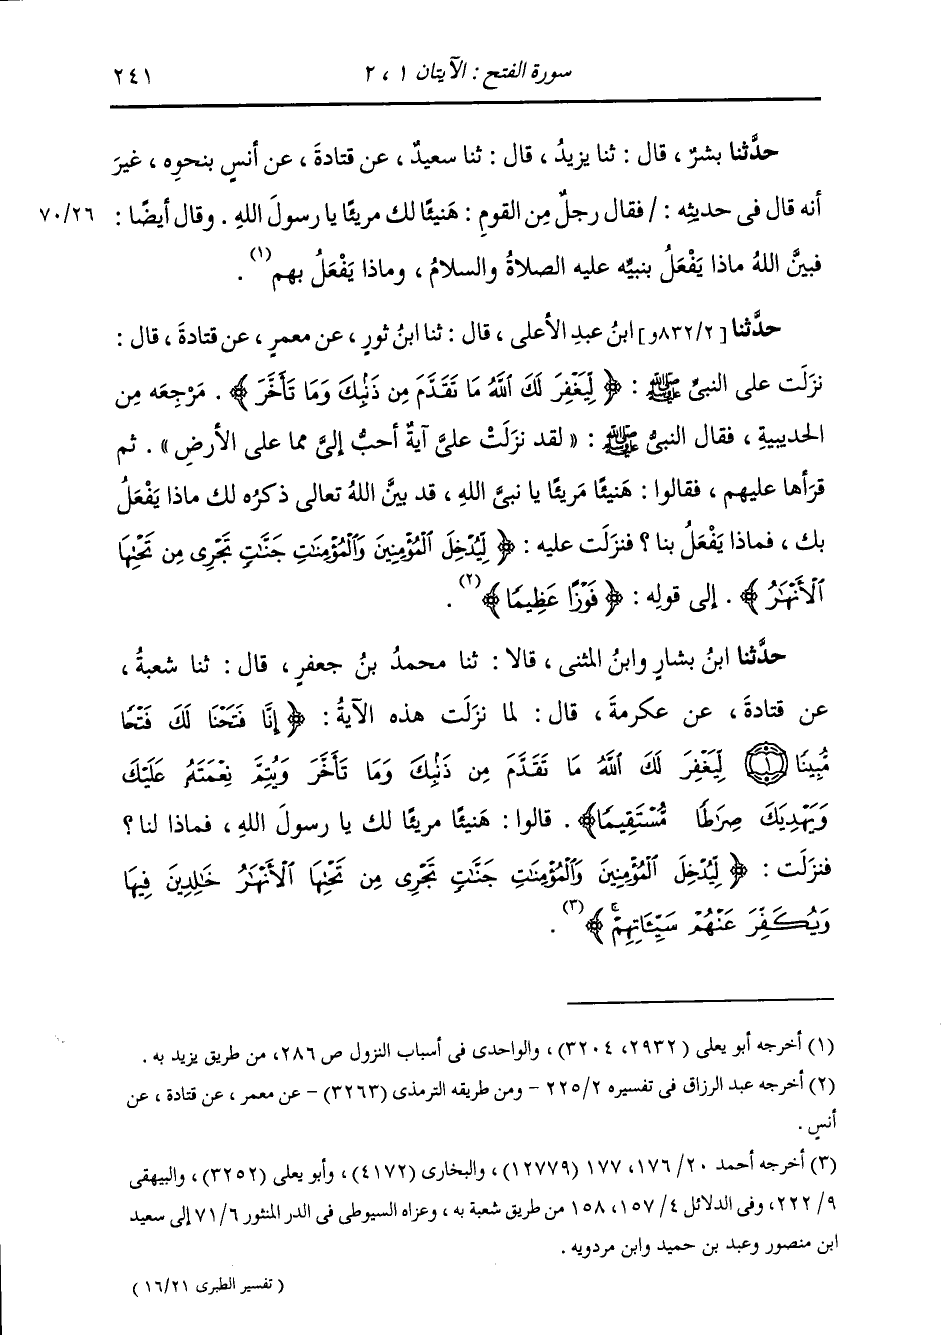 سورة الفتح : الآيتان ١ ، ٢
٢٤١
حدَّثنا بشرٌ ، قال : ثنا يزيدُ ، قال : ثنا سعيدٌ ، عن قتادةَ ، عن أنسٍ بنحوِه ، غيرَ
أنه قال فى حديثِه : / فقال رجلٌ مِن القومِ : هَنيئًا لك مريئًا يا رسولَ اللهِ . وقال أيضًا :
٧٠/٢٦
فبينَّ اللهُ ماذا يَفْعَلُ بنبيِّه عليه الصلاةُ والسلامُ ، وماذا يَفْعَلُ بهم(١) .
حدَّثنا [٨٣٢/٢و] ابنُ عبدِ الأعلى ، قال : ثنا ابنُ ثورٍ ، عن معمرٍ ، عن قتادةَ ، قال :
نزَلَت على النبىِّ ﷺ : ﴿ لِّيَغْفِرَ لَكَ ٱللَّهُ مَا تَقَدَّمَ مِن ذَنۢبِكَ وَمَا تَأَخَّرَ ﴾ . مَرْجِعَه مِن
الحديبيةِ ، فقال النبىُّ ﷺ : « لقد نزَلَتْ علىَّ آيةٌ أحبُّ إلىَّ مما على الأرضِ » . ثم
قرَأها عليهم ، فقالوا : هَنيئًا مَريئًا يا نبىَّ اللهِ ، قد بينَّ اللهُ تعالى ذكرُه لك ماذا يَفْعَلُ
بك ، فماذا يَفْعَلُ بنا ؟ فنزَلَت عليه : ﴿ لِّيُدْخِلَ ٱلْمُؤْمِنِينَ وَٱلْمُؤْمِنَٰتِ جَنَّٰتٍ تَجْرِى مِن تَحْتِهَا
ٱلْأَنْهَٰرُ ﴾ . إلى قولِه : ﴿ فَوْزًا عَظِيمًا ﴾(٢) .
حدَّثنا ابنُ بشارٍ وابنُ المثنى ، قالا : ثنا محمدُ بنُ جعفرٍ ، قال : ثنا شعبةُ ،
عن قتادةَ ، عن عكرمةَ ، قال : لما نزَلَت هذه الآيةُ : ﴿ إِنَّا فَتَحْنَا لَكَ فَتْحًا
مُّبِينًا ۝١ لِّيَغْفِرَ لَكَ ٱللَّهُ مَا تَقَدَّمَ مِن ذَنۢبِكَ وَمَا تَأَخَّرَ وَيُتِمَّ نِعْمَتَهُۥ عَلَيْكَ
وَيَهْدِيَكَ صِرَٰطًا مُّسْتَقِيمًا ﴾ . قالوا : هَنيئًا مريئًا لك يا رسولَ اللهِ ، فماذا لنا ؟
فنزَلَت : ﴿ لِّيُدْخِلَ ٱلْمُؤْمِنِينَ وَٱلْمُؤْمِنَٰتِ جَنَّٰتٍ تَجْرِى مِن تَحْتِهَا ٱلْأَنْهَٰرُ خَٰلِدِينَ فِيهَا
وَيُكَفِّرَ عَنْهُمْ سَيِّـَٔاتِهِمْ ۚ ﴾(٣) .
(١) أخرجه أبو يعلى (٢٩٣٢، ٣٢٠٤) ، والواحدى فى أسباب النزول ص ٢٨٦، من طريق يزيد به .
(٢) أخرجه عبد الرزاق فى تفسيره ٢٢٥/٢ - ومن طريقه الترمذى (٣٢٦٣) - عن معمر ، عن قتادة ، عن
أنس .
(٣) أخرجه أحمد ٢٠/ ١٧٦، ١٧٧ (١٢٧٧٩) ، والبخارى (٤١٧٢) ، وأبو يعلى (٣٢٥٢) ، والبيهقى
٩/ ٢٢٢، وفى الدلائل ٤/ ١٥٧، ١٥٨ من طريق شعبة به ، وعزاه السيوطى فى الدر المنثور ٧١/٦ إلى سعيد
ابن منصور وعبد بن حميد وابن مردويه .
( تفسير الطبرى ١٦/٢١ )